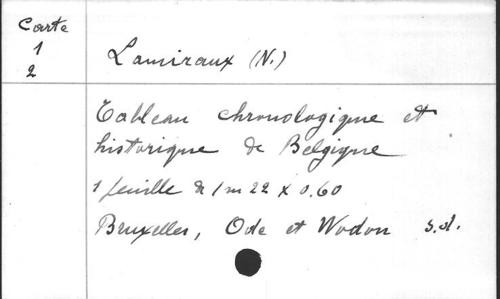 Carte
1
2
Lamiraux (N.)
Tableau chronologique et
historique de Belgique
1 feuille de 1m22 x 0.60
Bruxelles, Ode et Wodon s.d.